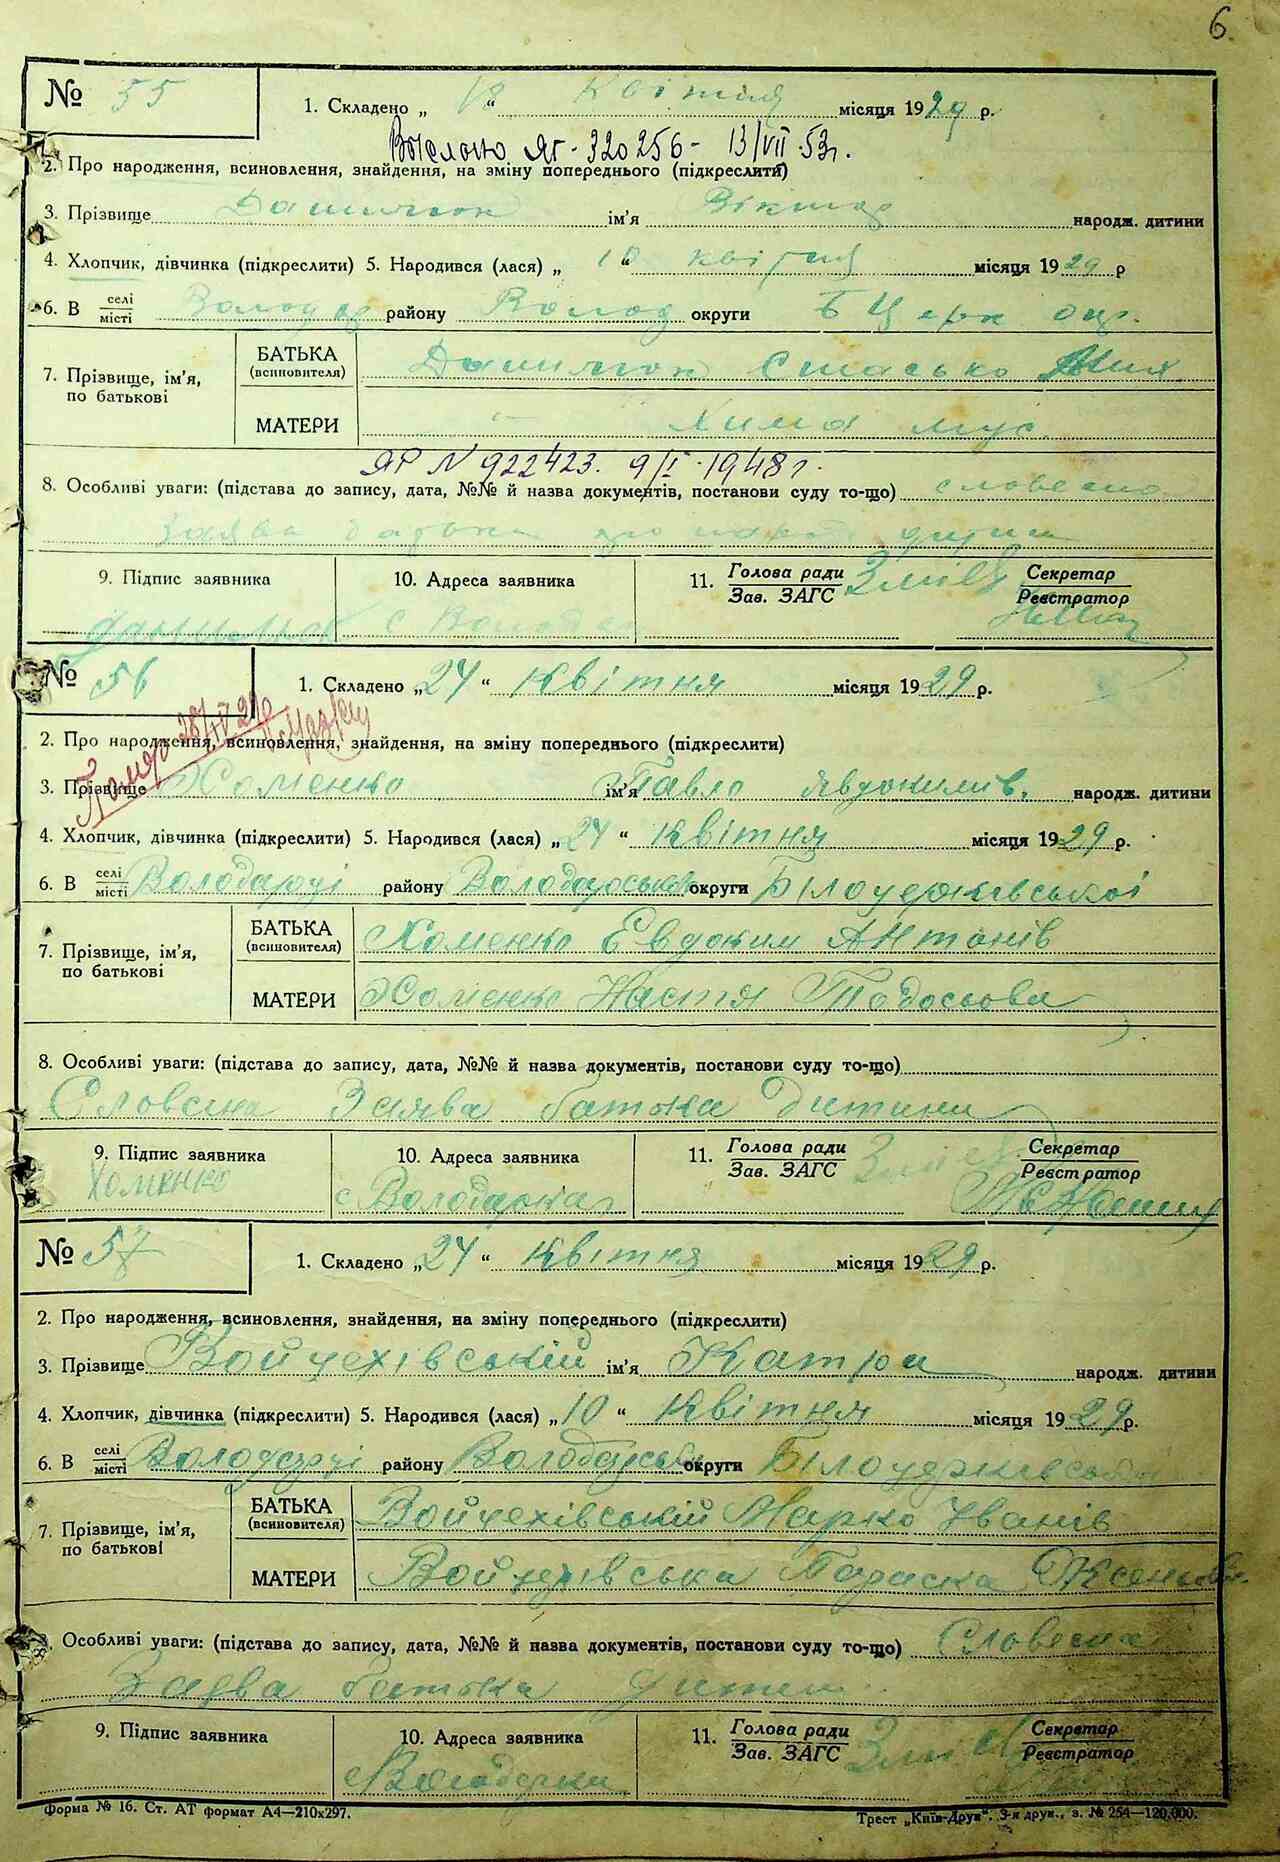 6.
№ 55
1. Складено „ 18 “ Квітня місяця 1929 р.
Вислано ЯГ - 320256 - 13/VII 53 г.
2. Про народження, всиновлення, знайдення, на зміну попереднього (підкреслити)
3. Прізвище ім'я Віктор народж. дитини
4. Хлопчик, дівчинка (підкреслити) 5. Народився (лася) „ 10 “ квітня місяця 1929 р
6. В селі/місті Володар району Волод округи Б Церк окр.
7. Прізвище, ім'я, по батькові
БАТЬКА (всиновителя) Стасько Мих
МАТЕРИ —„— Хима
ЯР N 922423. 9/I - 1948 г.
8. Особливі уваги: (підстава до запису, дата, №№ й назва документів, постанови суду то-що) словесна
Заява батька про народ дитини
9. Підпис заявника 10. Адреса заявника 11. Голова ради/Зав. ЗАГС Секретар/Реєстратор
с Волод
№ 56
1. Складено „ 24 “ Квітня місяця 1929 р.
2. Про народження, всиновлення, знайдення, на зміну попереднього (підкреслити)
3. Прізвище Хоменко ім'я Павло Явдокимів. народж. дитини
4. Хлопчик, дівчинка (підкреслити) 5. Народився (лася) „ 24 “ Квітня місяця 1929 р.
6. В селі/місті Володарці району Володарськой округи Білоцерківської
7. Прізвище, ім'я, по батькові
БАТЬКА (всиновителя) Хоменко Евдоким Антонів
МАТЕРИ Хоменко Настя Тодосьова
8. Особливі уваги: (підстава до запису, дата, №№ й назва документів, постанови суду то-що)
Словесна Заява батька Дитини
9. Підпис заявника 10. Адреса заявника 11. Голова ради/Зав. ЗАГС Секретар/Реєстратор
Хоменко с Володарка
№ 57
1. Складено „ 24 “ Квітня місяця 1929 р.
2. Про народження, всиновлення, знайдення, на зміну попереднього (підкреслити)
3. Прізвище Войцехівській ім'я Катря народж. дитини
4. Хлопчик, дівчинка (підкреслити) 5. Народився (лася) „ 10 “ Квітня місяця 1929 р.
6. В селі/місті Володарці району Володарськ округи Білоцерківська
7. Прізвище, ім'я, по батькові
БАТЬКА (всиновителя) Войцехівській Марко Іванів
МАТЕРИ Войцехівська Параска
8. Особливі уваги: (підстава до запису, дата, №№ й назва документів, постанови суду то-що) Словесна
Заява батька дитини
9. Підпис заявника 10. Адреса заявника 11. Голова ради/Зав. ЗАГС Секретар/Реєстратор
с Володарка
Форма № 16. Ст. АТ формат А4—210х297. Трест „Київ-Друк“. 3-я друк., з. № 254—120.000.